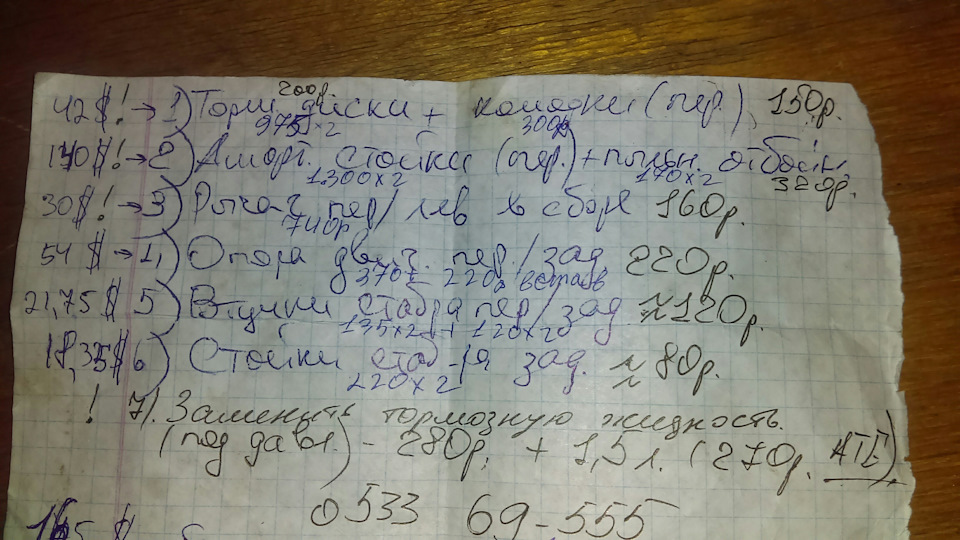 200р.
42$! → 1) Торм. диски + колодки (пер.) 150р.
975×2 300р
140$! → 2) Аморт. стойки (пер.) + пыльн. отбойн.
1300×2 170×2 320р.
30$! → 3) Рычаг пер/лев в сборе 160р.
740р
54$ → Опора двиг. пер./зад. 220р.
370 220
21,75$ 5) Втулки стаб-ра пер/зад. ≈120р.
135×2 + 120×2
6) Стойки стаб-ра зад. ≈80р.
220×2
! 7). Заменить тормозную жидкость.
(под давл.) - 280р. + 1,5л. (270р. ATE)
0533 69-555